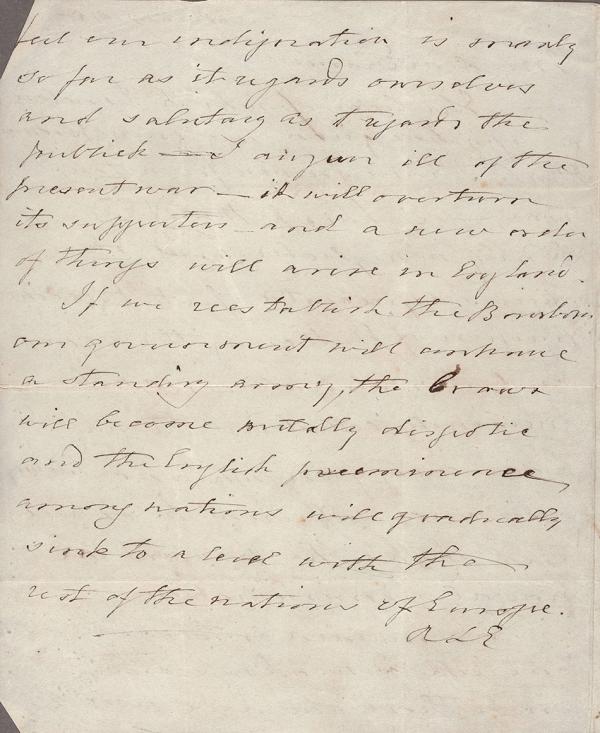 feel our indignation is manly
so far as it regards ourselves
and salutary as it regards the
publick — I augur ill of the
present war — it will overturn
its supporters and a new order
of things will arise in England.
If we reestablish the Bourbons
our government will
a standing army, the crown
will become dispotic
and the English preeminence
among nations will gradually
sink to a level with the
rest of the nations of Europe.
RLE